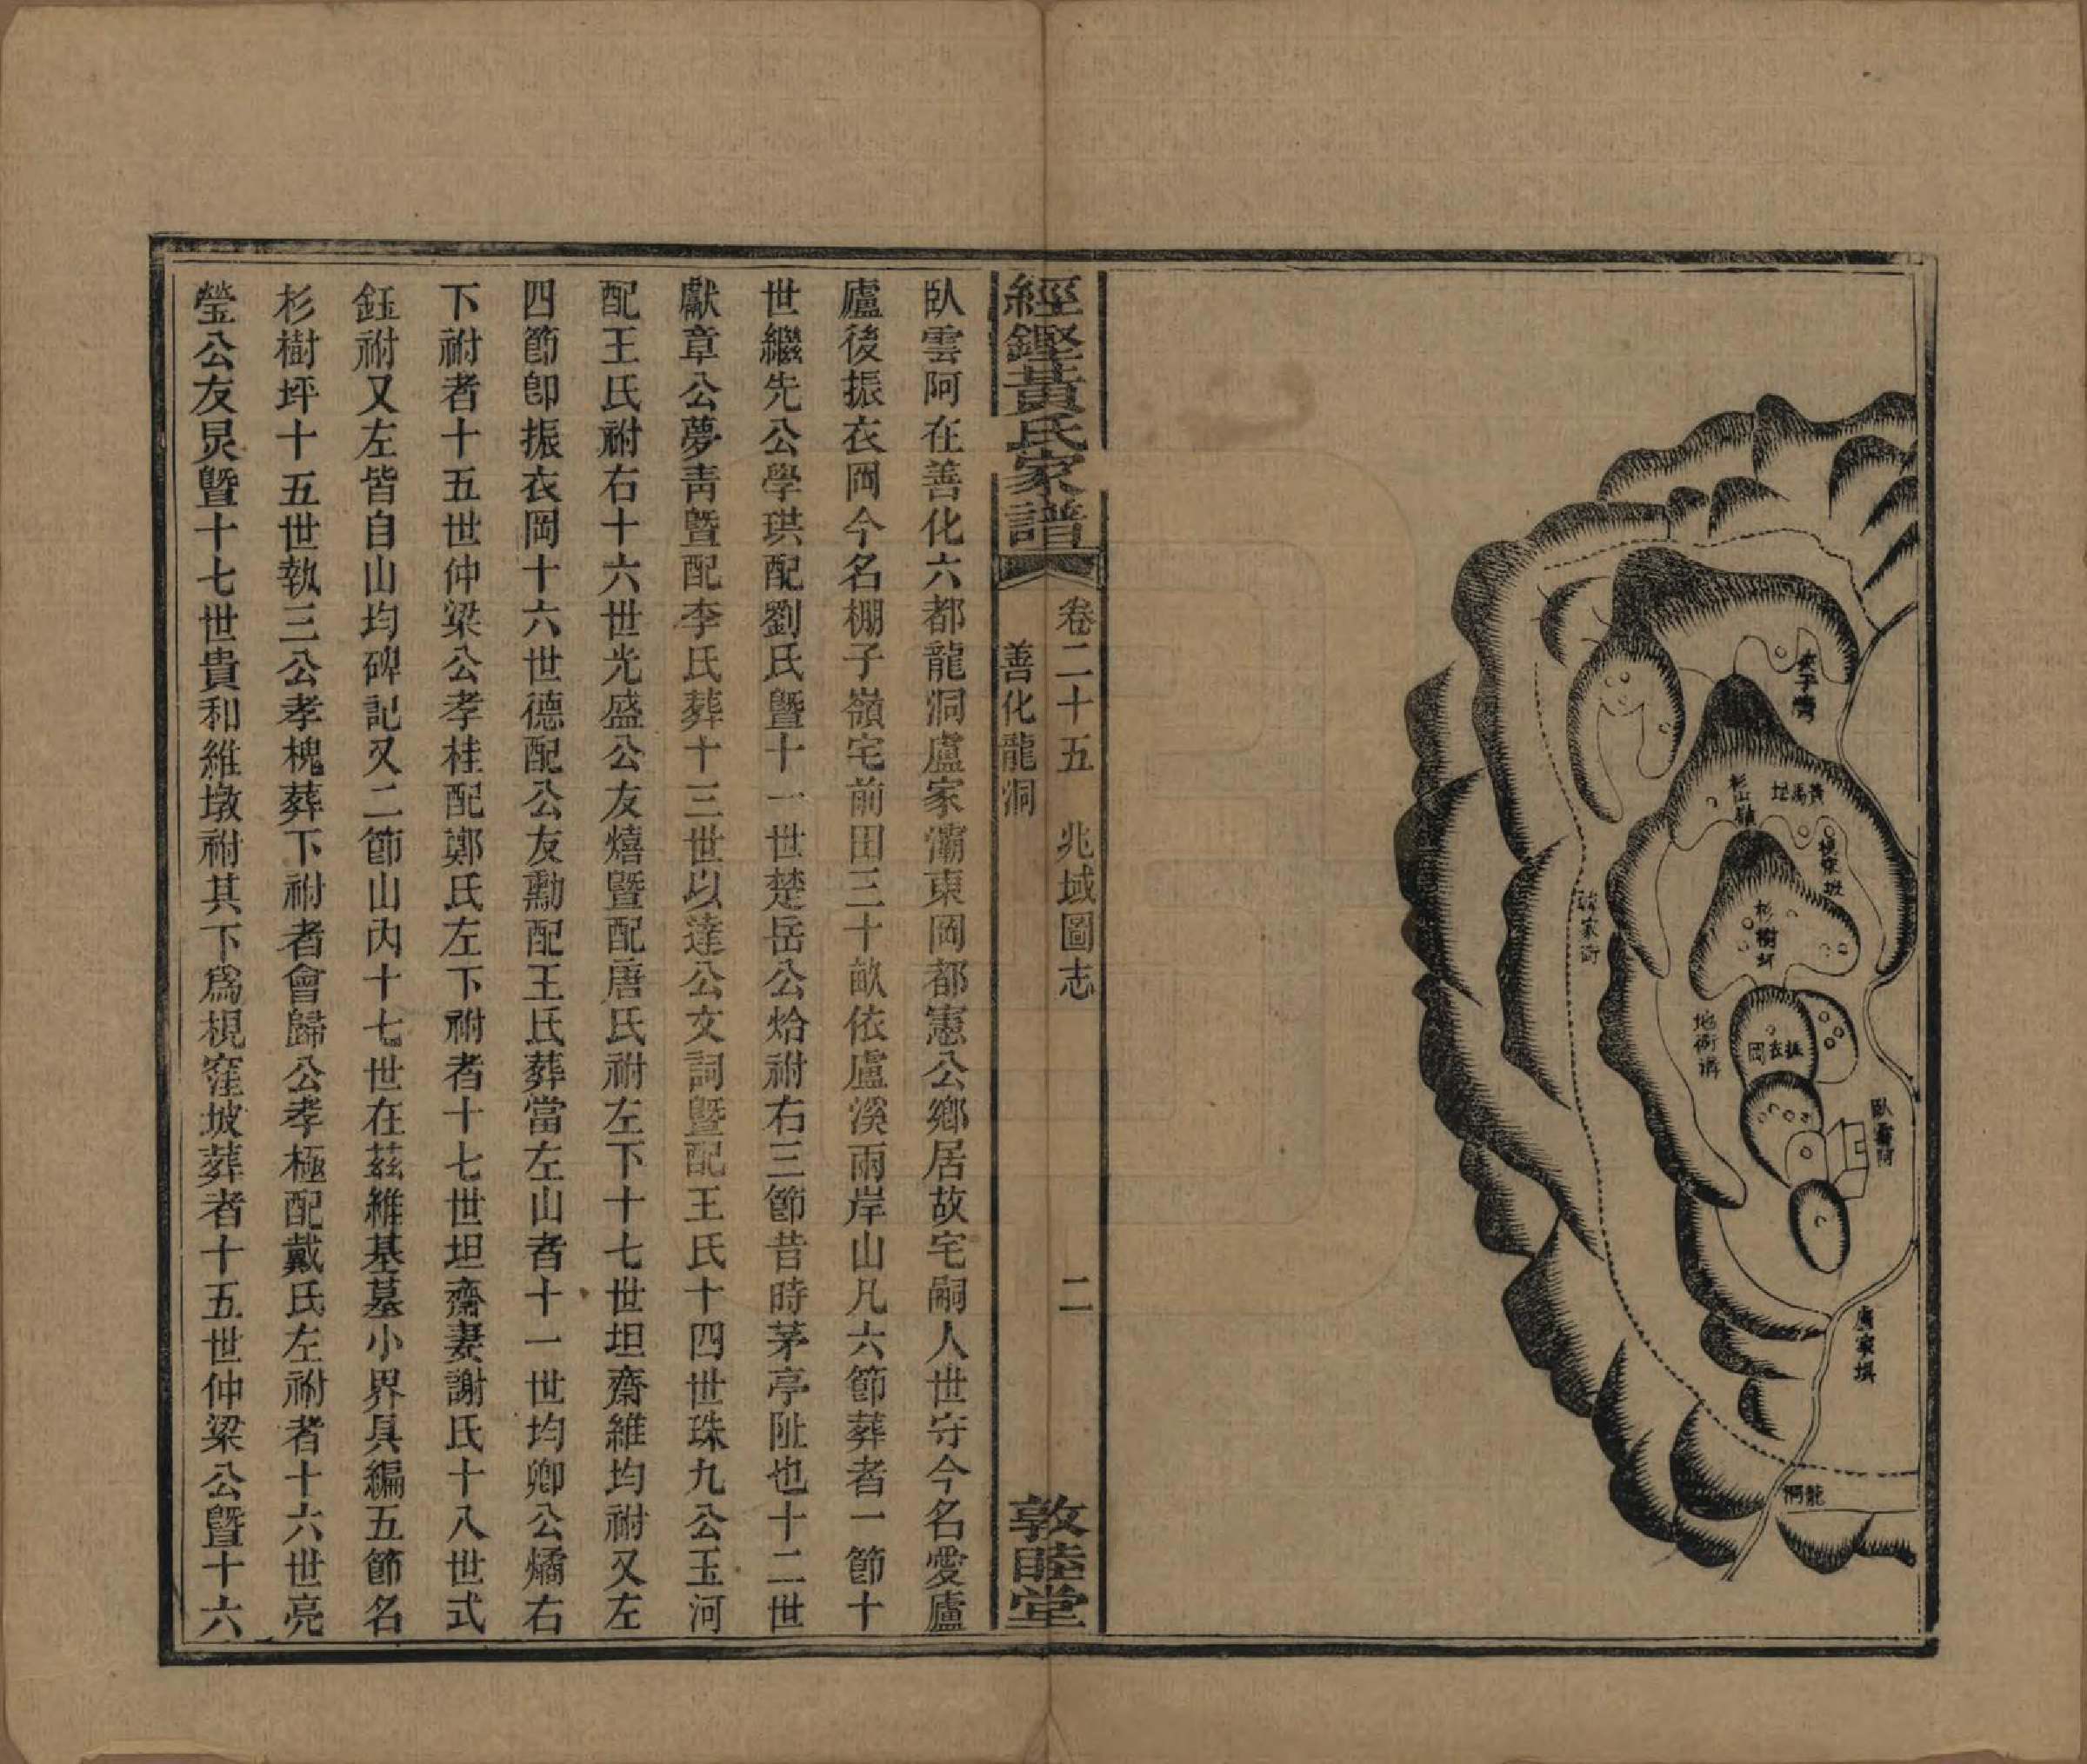 夾子灣
杉山嶺
黃馬坦
杉樹坪
振衣岡
臥雲阿
龍洞
經鏗黃氏家譜
卷二十五 兆域圖志
善化龍洞
二
敦睦堂
臥雲阿在善化六都龍洞盧家灞東岡都憲公鄉居故宅嗣人世守今名愛盧
廬後振衣岡今名棚子嶺宅前田三十畝依盧溪兩岸山凡六節葬者一節十
世繼先公學珙配劉氏暨十一世楚岳公烚祔右三節昔時茅亭阯也十二世
獻章公夢靑暨配李氏葬十三世以達公文詞暨配王氏十四世珠九公玉河
配王氏祔右十六世光盛公友熺暨配唐氏祔左下十七世坦齋維均祔又左
四節卽振衣岡十六世德配公友勳配王氏葬當左山者十一世均卿公燏右
下祔者十五世仲梁公孝桂配鄭氏左下祔者十七世坦齋妻謝氏十八世式
鈺祔又左皆自山均碑記又二節山內十七世在茲維基墓小界具編五節名
杉樹坪十五世執三公孝槐葬下祔者會歸公孝極配戴氏左祔者十六世亮
瑩公友炅暨十七世貴和維墩祔其下爲梘窪坡葬者十五世仲梁公暨十六